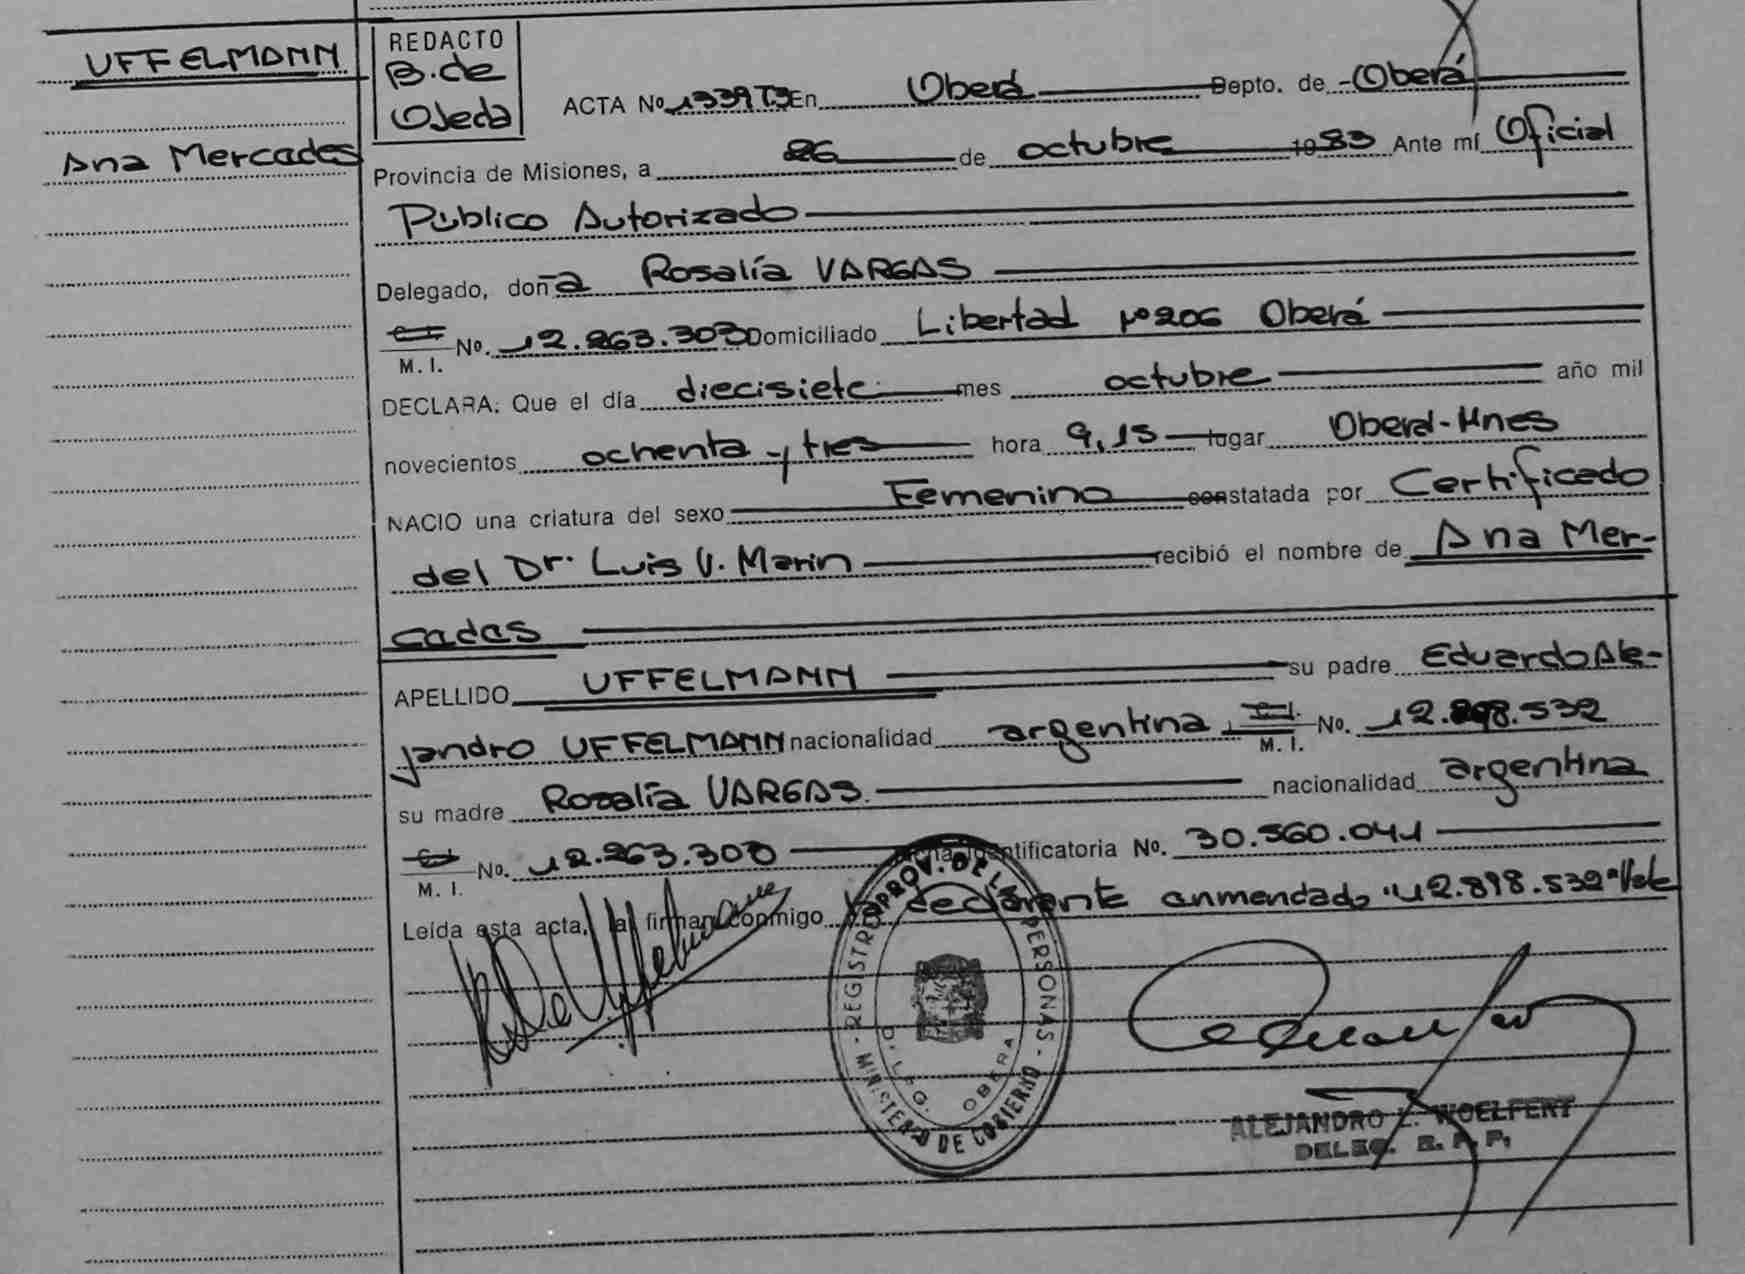 UFFELMANN
Ana Mercades
REDACTO
B. de
Ojeda
ACTA No 1339T3 En Oberá Depto. de Oberá
Provincia de Misiones, a 26 de octubre 1983 Ante mí Oficial
Público Autorizado
Delegado, doña Rosalía VARGAS
M. I. No. 12.263.303 Domiciliado Libertad Nº 206 Oberá
DECLARA: Que el día diecisiete mes octubre año mil
novecientos ochenta y tres hora 9,15 lugar Oberá-Mnes
NACIO una criatura del sexo Femenino constatada por Certificado
del Dr. Luis V. Marin recibió el nombre de Ana Mer-
cadas
APELLIDO UFFELMANN su padre Eduardo Ale-
jandro UFFELMANN nacionalidad argentina C.I. M. I. No. 12.898.532
su madre Rosalía VARGAS. nacionalidad argentina
M. I. No. 12.263.303 identificatoria No. 30.560.041
Leída esta acta, la firman conmigo declarante enmendado "12.898.532" Vale
REGISTRO PROV. DE LAS PERSONAS - MINISTERIO DE GOBIERNO -
DELEG. OBERA
ALEJANDRO L. WOELFERT
DELEG. R. P. P.